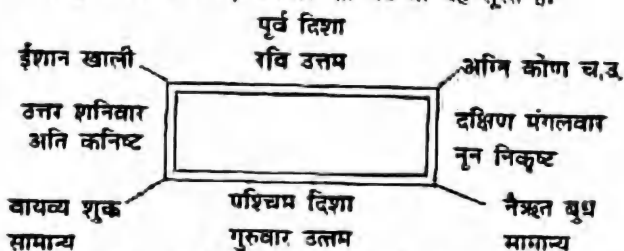 पूर्व दिशा
रवि उत्तम
ईशान खाली
अग्नि कोण च,उ,
उत्तर शनिवार
अति कनिष्ट
दक्षिण मंगलवार
नून निकृष्ट
वायव्य शुक्र
सामान्य
पश्चिम दिशा
गुरुवार उत्तम
नैऋत बुध
सामान्य